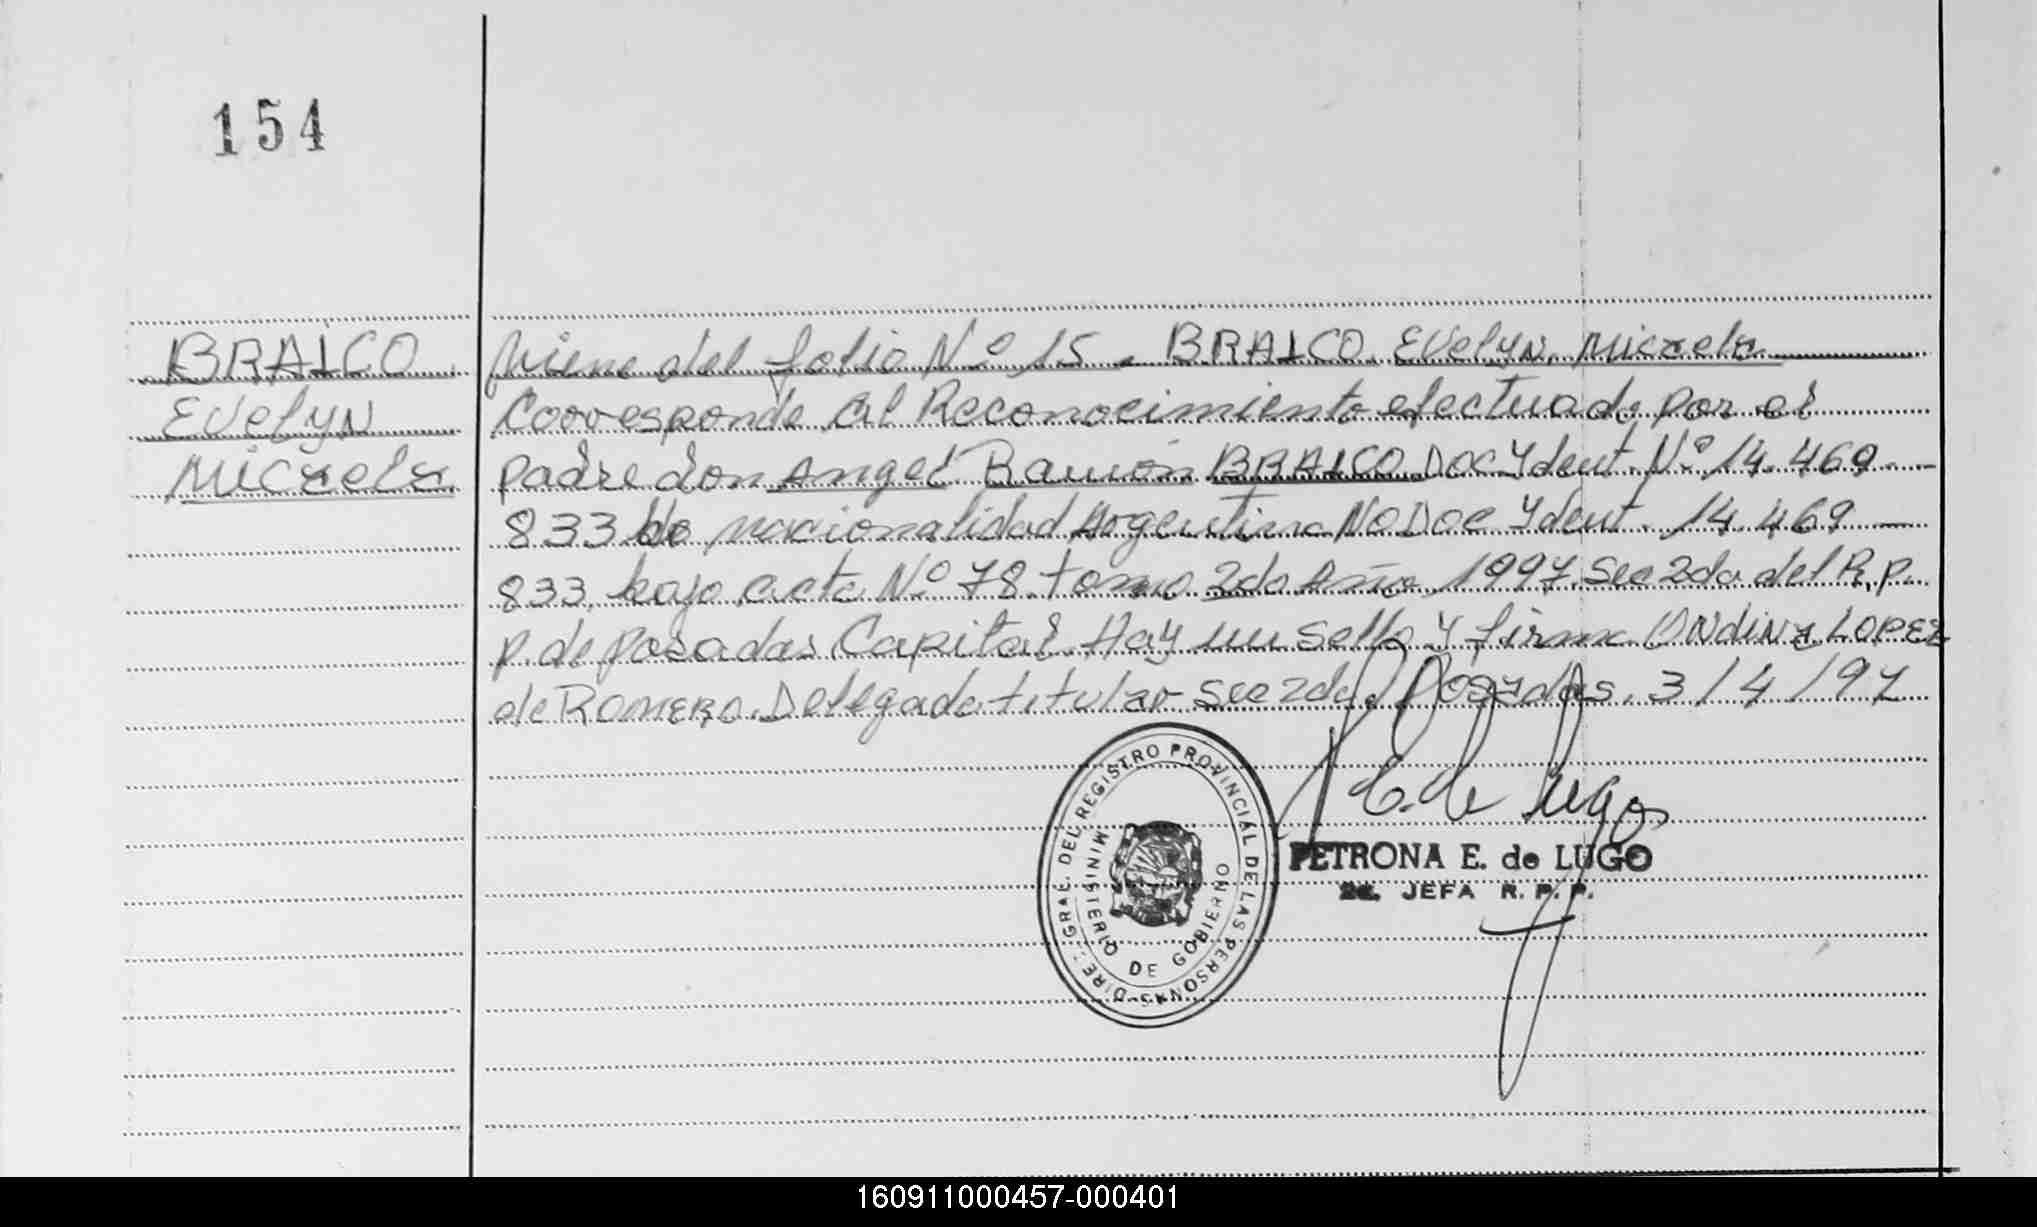 154
BRAICO
Evelyn
Micaela
Viene del folio Nº 15. BRAICO Evelyn Micaela
Corresponde al Reconocimiento efectuado por el
padre don Angel Ramón BRAICO Doc Ydent. Nº 14.469
833 de nacionalidad Argentina No Doc Ydent. 14.469
833. bajo acta Nº 78 tomo 2do Año 1997. Sec 2da del R.p.
p. de posadas Capital. Hay un sello y firma Ondina LOPEZ
de ROMERO. Delegada titular Sec 2da. Posadas. 3/4/97
DIRE. GRAL. DEL REGISTRO PROVINCIAL DE LAS PERSONAS
MINISTERIO DE GOBIERNO
E. de Lugo
PETRONA E. de LUGO
JEFA R. P. P.
160911000457-000401